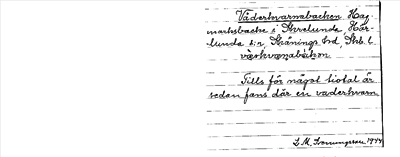 Väderkvarnsbacken, Hag-
marksbacke i Skrelunda, Här-
lunda s:n, Skånings hd, Skb. l.
väρkvaɳabákən
Tills för något tiotal år
sedan fans där en väderkvarn
L. M. Svenungsson 1944